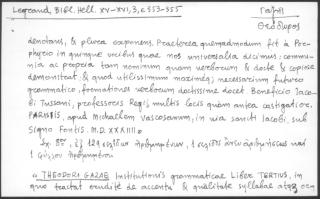 Legrand, Bibl. Hell. XV-XVI, 3, σ. 353-355
Γαζῆς
Θεόδωρος
denotans, & plurea exponens. Praeterea quemadmodum fit à Por-
phyrio in quinque vocibus quae nos universalia dicimus: commu-
nia ac propria tam nominum quam verborum & docte & copiose
demonstrat & quod utilissimum maximeq; necessarium futuro
grammatico, formationes verborum doctissime docet. Beneficio Iaco-
bi Tussani, professoris Regii multis locis quàm antea castigatiore.
PARISIIS, apud Michaëlem Vascosanum, in via sancti Iacobi sub
Signo Fontis. M.D.XXXIIII.
Σχ. 8ον, 129 σελίδων ἠριθμημένων, 1 σελίδος ἄνευ ἀριθμήσεως καὶ
1 φύλλου
« THEODORI GAZAE Institutionis grammaticae Liber TERTIUS, in
quo tractat erudite de accentu & qualitate syllabae atq;